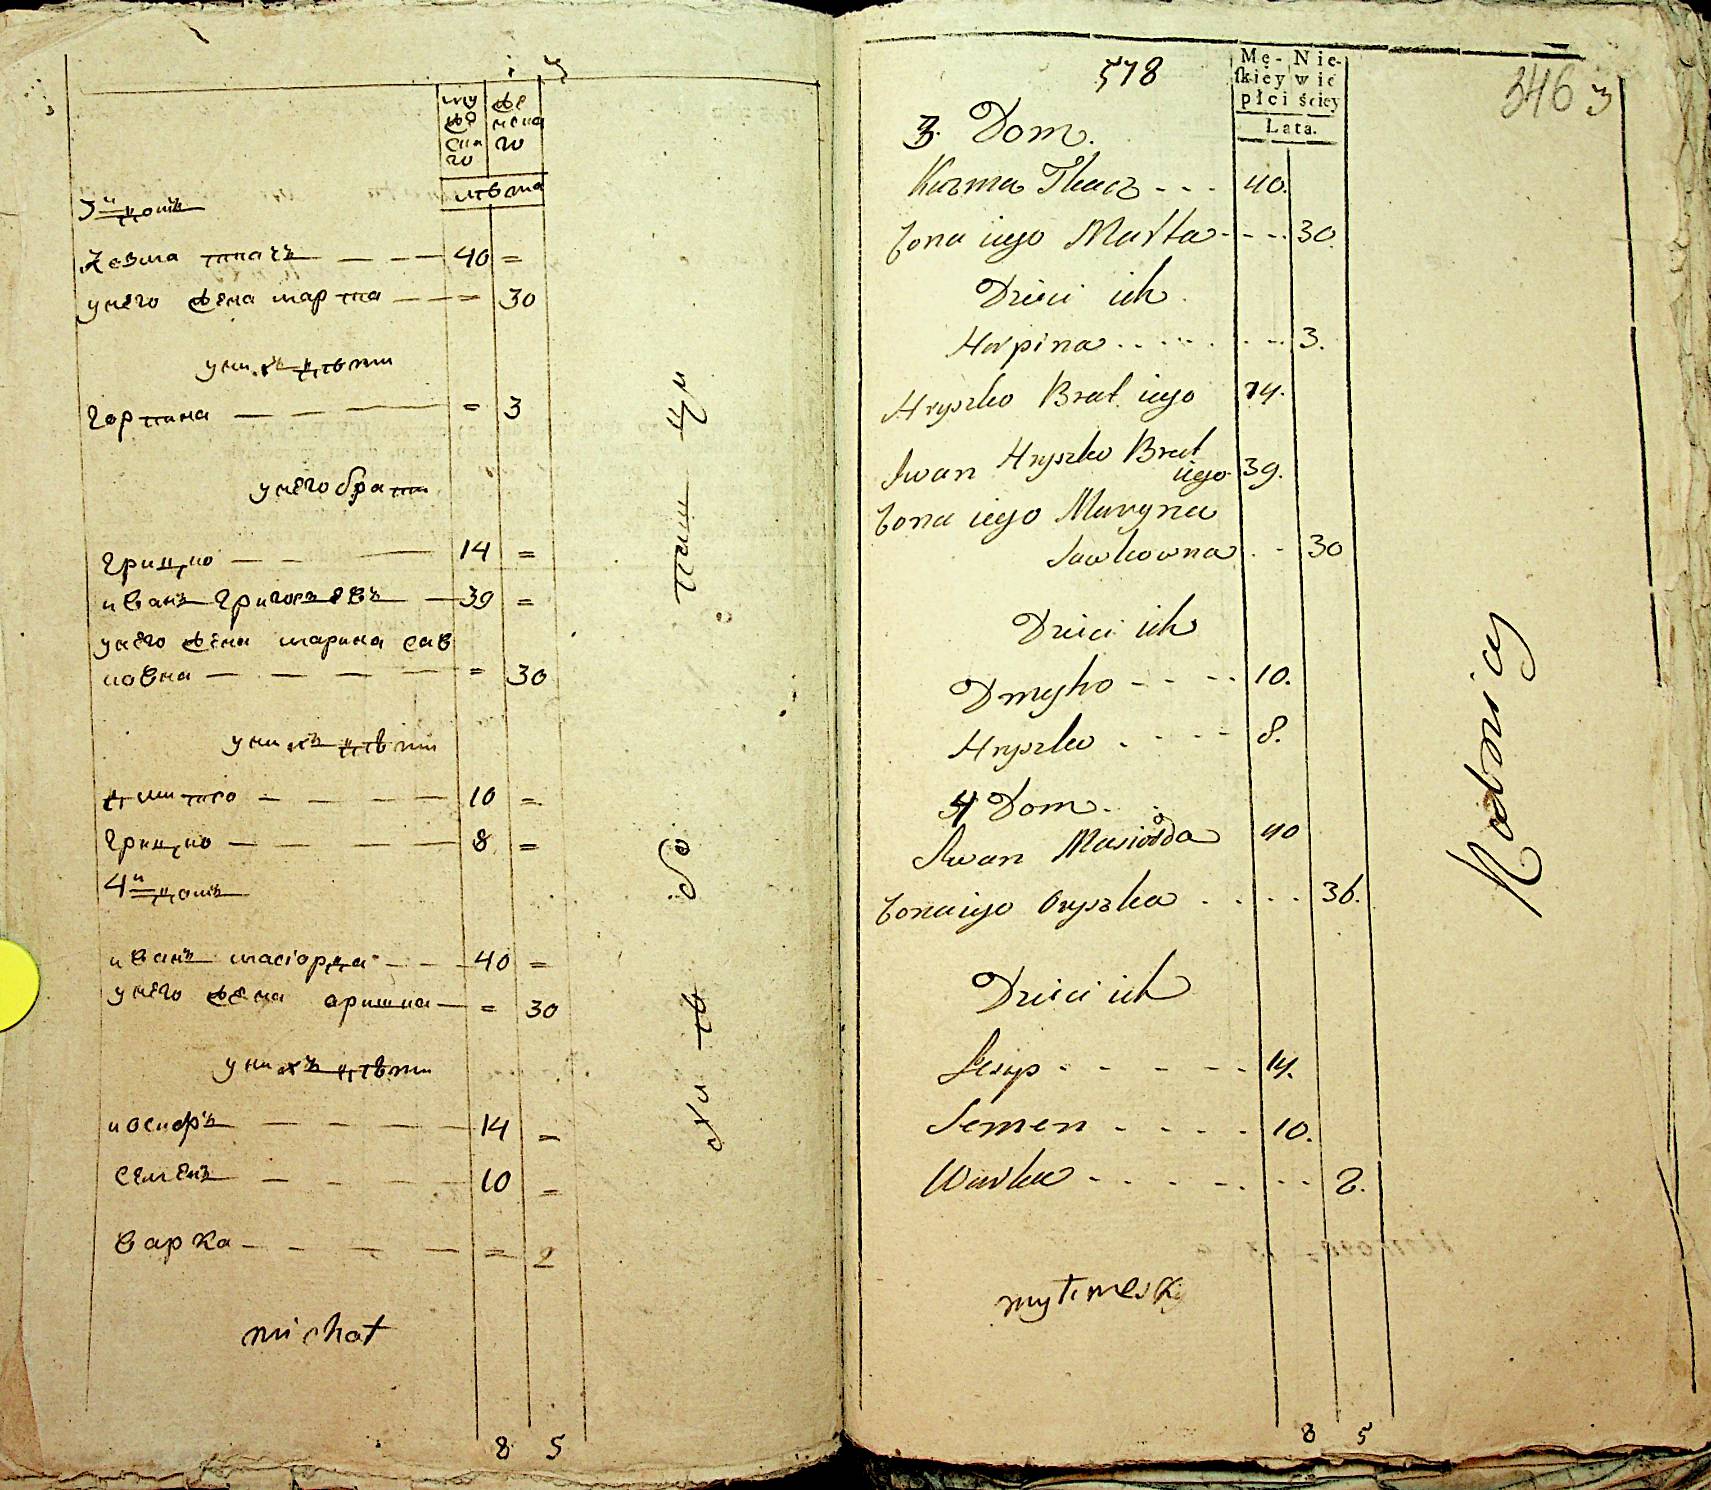 му
же
ска
го
же
нска
го
лѣта
3й домъ
Козма ткачъ — — — 40 =
у него жена марта — — = 30
у нихъ дѣти
горпина — — — = 3
у него брати
грицко — — — 14 =
иванъ григорьевъ — 39 =
у него жена марина сав
ковна — — — — = 30
у нихъ дѣти
дмитро — — — — 10 =
грицко — — — — 8 =
4й домъ
иванъ масіорда — — — 40 =
у него жена аришка — = 30
у нихъ дѣти
иосифъ — — — — 14 =
семенъ — — — — 10 =
варка — — — — = 2
michał
8 5
578
346
3
Mę- Nie-
skiey wie
płci ściey
Lata.
3. Dom.
Kuzma Tkacz - - - 40.
Żona iego Marta - - - - 30.
Dzieci ich
Horpina . . . . . . . - - 3.
Hryszko Brat iego 14.
Iwan Hryszko Brat
iego 39.
Żona iego Maryna
Sawkowna . - 30
Dzieci ich
Dmytro - - - - 10.
Hryszko . - - - 8.
4 Dom.
Iwan Masiorda 40
Żona iego Oryszka . . . . 36.
Dzieci ich
Iesyp - - - - - 14.
Semen - - - - 10.
Warka - - - - - - - 2.
mytmeski
8 5
Kodnicy